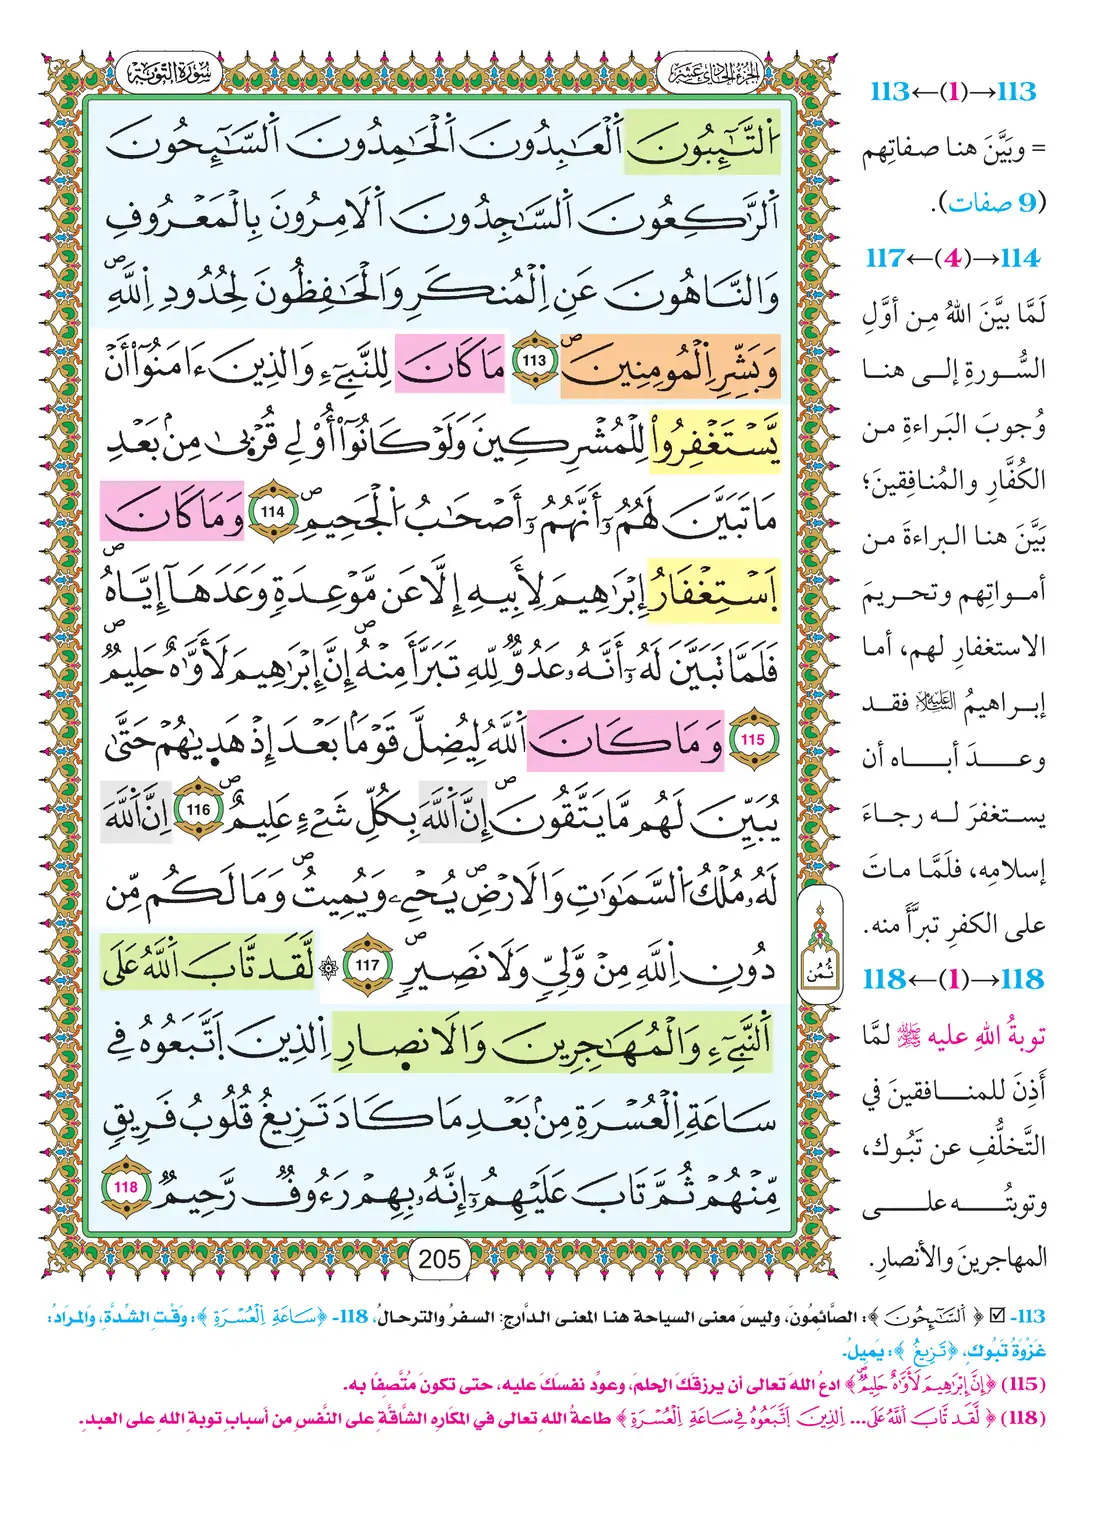 الجزء الحادي عشر
سورة التوبة
اَ۬لتَّٰٓئِبُونَ اَ۬لْعَٰبِدُونَ اَ۬لْحَٰمِدُونَ اَ۬لسَّٰٓئِحُونَ
اَ۬لرَّٰكِعُونَ اَ۬لسَّٰجِدُونَ اَ۬لَامِرُونَ بِالْمَعْرُوفِ
وَالنَّاهُونَ عَنِ اِ۬لْمُنكَرِ وَالْحَٰفِظُونَ لِحُدُودِ اِ۬للَّهِۖ
وَبَشِّرِ اِ۬لْمُومِنِينَۖ 113 مَا كَانَ لِلنَّبِيٓءِ وَالذِينَ ءَامَنُوٓاْ أَنْ
يَّسْتَغْفِرُواْ لِلْمُشْرِكِينَ وَلَوْ كَانُوٓاْ أُوْلِے قُرْب۪ىٰ مِنۢ بَعْدِ
مَا تَبَيَّنَ لَهُمُۥٓ أَنَّهُمُۥٓ أَصْحَٰبُ اُ۬لْجَحِيمِۖ 114 وَمَا كَانَ
اَ۪سْتِغْفَارُ إِبْرَٰهِيمَ لِأَبِيهِ إِلَّا عَن مَّوْعِدَةٖ وَعَدَهَآ إِيَّاهُۖ
فَلَمَّا تَبَيَّنَ لَهُۥٓ أَنَّهُۥ عَدُوّٞ لِّلهِ تَبَرَّأَ مِنْهُۖ إِنَّ إِبْرَٰهِيمَ لَأَوَّٰهٌ حَلِيمٞۖ
115 وَمَا كَانَ اَ۬للَّهُ لِيُضِلَّ قَوْماَۢ بَعْدَ إِذْ هَد۪يٰهُمْ حَتَّىٰ
يُبَيِّنَ لَهُم مَّا يَتَّقُونَۖ إِنَّ اَ۬للَّهَ بِكُلِّ شَےْءٍ عَلِيمٌۖ 116 اِنَّ اَ۬للَّهَ
لَهُۥ مُلْكُ اُ۬لسَّمَٰوَٰتِ وَالَارْضِۖ يُحْيِۦ وَيُمِيتُۖ وَمَا لَكُم مِّن
دُونِ اِ۬للَّهِ مِنْ وَّلِيّٖ وَلَا نَصِيرٖۖ 117 ۞ لَّقَد تَّابَ اَ۬للَّهُ عَلَى
ثُمُن
اَ۬لنَّبِيٓءِ وَالْمُهَٰجِرِينَ وَالَانص۪ارِ اِ۬لذِينَ اَ۪تَّبَعُوهُ فِے
سَاعَةِ اِ۬لْعُسْرَةِ مِنۢ بَعْدِ مَا كَادَ تَزِيغُ قُلُوبُ فَرِيقٖ
مِّنْهُمْ ثُمَّ تَابَ عَلَيْهِمُۥٓ إِنَّهُۥ بِهِمْ رَءُوفٞ رَّحِيمٞ 118
205
113←(1)→113
= وبَيَّنَ هنا صفاتِهم
(9 صفات).
117←(4)→114
لَمَّا بيَّنَ اللهُ مِن أوَّلِ
السُّورةِ إلى هنا
وُجوبَ البَراءةِ من
الكُفَّارِ والمُنافِقينَ؛
بَيَّنَ هنا البراءةَ من
أمواتِهم وتحريمَ
الاستغفارِ لهم، أما
إبراهيمُ عليه السلام فقد
وعدَ أباه أن
يستغفرَ له رجاءَ
إسلامِه، فلَمَّا ماتَ
على الكفرِ تبرَّأَ منه.
118←(1)→118
توبةُ اللهِ عليه ﷺ لمَّا
أَذِنَ للمنافقينَ في
التَّخلُّفِ عن تَبُوك،
وتوبتُه على
المهاجرينَ والأنصارِ.
113- ☑ ﴿ اَ۬لسَّٰٓئِحُونَ ﴾: الصَّائِمُونَ، وليسَ معنى السياحة هنا المعنى الدَّارج: السفرُ والترحالُ، 118- ﴿سَاعَةِ اِ۬لْعُسْرَةِ ﴾: وَقْتِ الشِّدَّةِ، وَالمرَادُ:
غَزْوَةُ تَبُوكَ، ﴿تَزِيغُ ﴾: يَمِيلُ.
(115) ﴿إِنَّ إِبْرَٰهِيمَ لَأَوَّٰهٌ حَلِيمٞۖ﴾ ادعُ اللهَ تعالى أن يرزقَكَ الحلمَ، وعوِّد نفسَكَ عليه، حتى تكونَ مُتَّصِفًا به.
(118) ﴿ لَّقَد تَّابَ اَ۬للَّهُ عَلَى... اِ۬لذِينَ اَ۪تَّبَعُوهُ فِے سَاعَةِ اِ۬لْعُسْرَةِ ﴾ طاعةُ اللهِ تعالى في المكَارِهِ الشَّاقَّةِ على النَّفْسِ من أسبابِ توبةِ اللهِ على العبدِ.